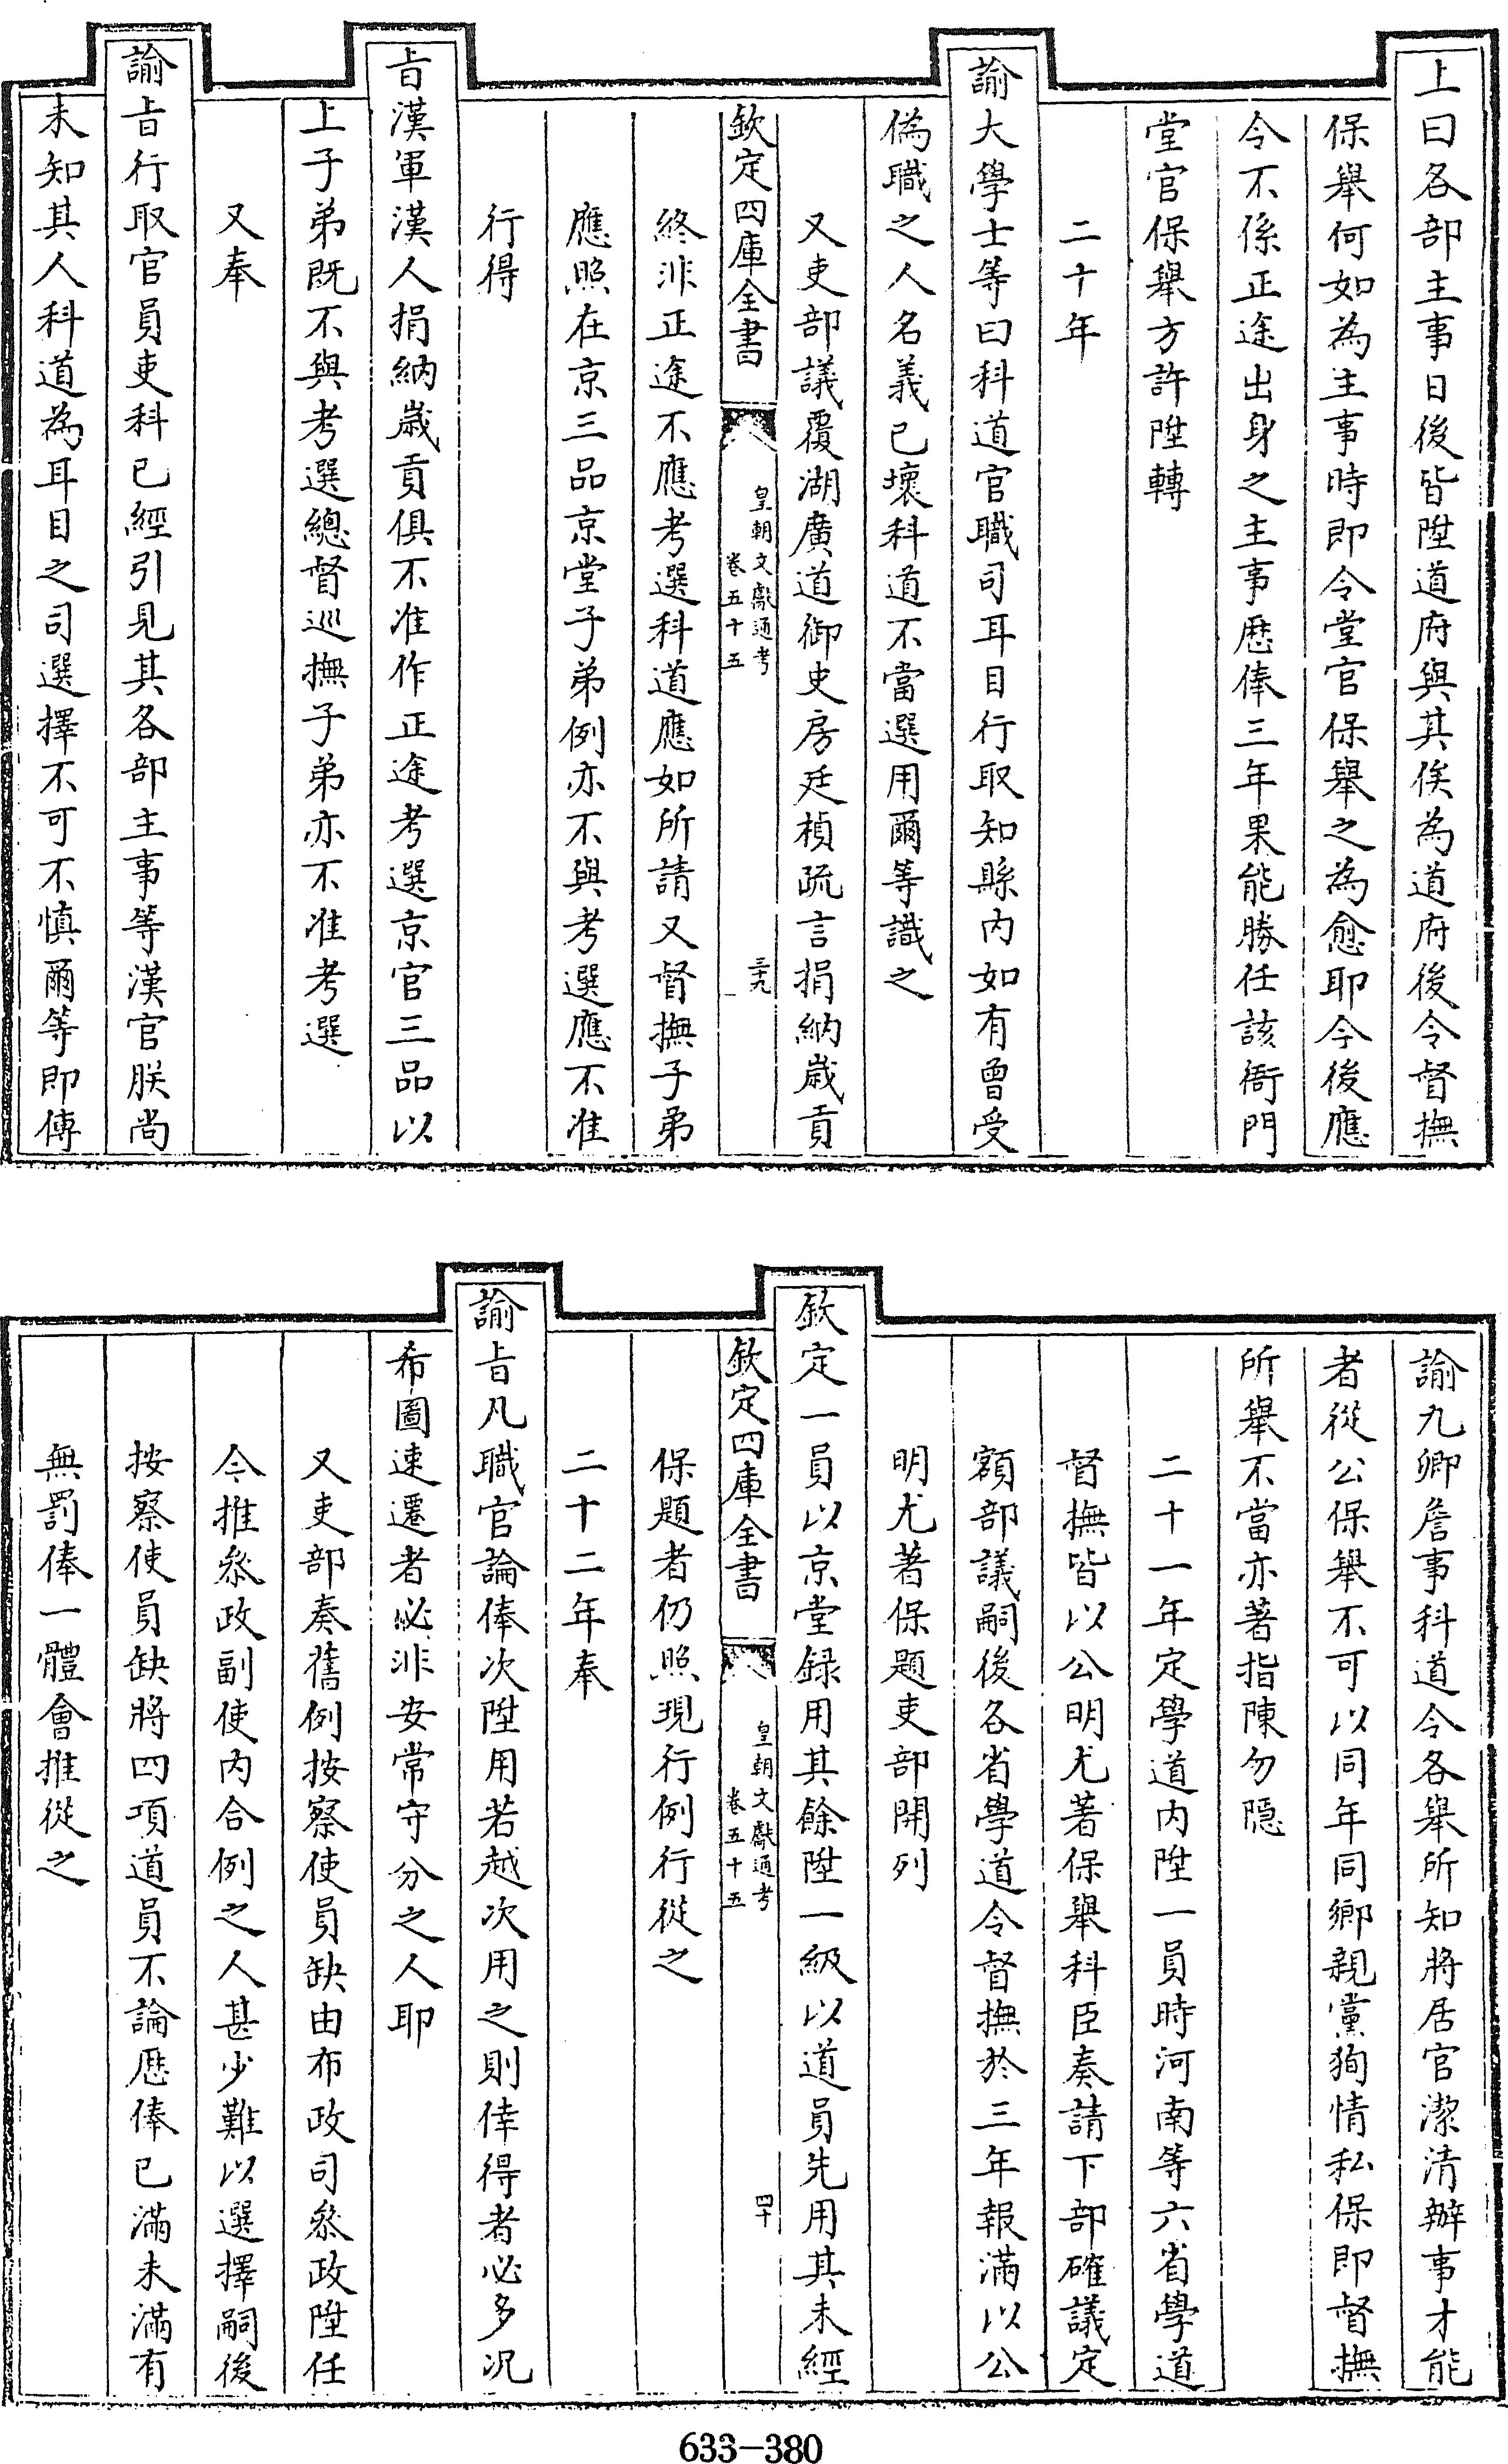 上曰各部主事日後皆陞道府與其俟為道府後令督撫
保舉何如為主事時即令堂官保舉之為愈耶今後應
令不係正途出身之主事歴俸三年果能勝任該衙門
堂官保舉方許陞轉
二十年
諭大學士等曰科道官職司耳目行取知縣內如有曾受
偽職之人名義已壞科道不當選用爾等識之
又吏部議覆湖廣道御史房廷楨疏言捐納歲貢
欽定四庫全書
皇朝文獻通考
卷五十五
三十九
終非正途不應考選科道應如所請又督撫子弟
應照在京三品京堂子弟例亦不與考選應不准
行得
旨漢軍漢人捐納歲貢俱不准作正途考選京官三品以
上子弟既不與考選總督巡撫子弟亦不准考選
又奉
諭旨行取官員吏科已經引見其各部主事等漢官朕尚
未知其人科道為耳目之司選擇不可不慎爾等即傳
諭九卿詹事科道令各舉所知將居官潔清辦事才能
者從公保舉不可以同年同鄉親黨狥情私保即督撫
所舉不當亦著指陳勿隱
二十一年定學道內陞一員時河南等六省學道
督撫皆以公明尤著保舉科臣奏請下部確議定
額部議嗣後各省學道令督撫於三年報滿以公
明尤著保題吏部開列
欽定一員以京堂録用其餘陞一級以道員先用其未經
欽定四庫全書
皇朝文獻通考
卷五十五
四十
保題者仍照現行例行從之
二十二年奉
諭旨凡職官論俸次陞用若越次用之則倖得者必多況
希圖速遷者必非安常守分之人耶
又吏部奏舊例按察使員缺由布政司叅政陞任
今推叅政副使內合例之人甚少難以選擇嗣後
按察使員缺將四項道員不論歴俸已滿未滿有
無罰俸一體會推從之
633-380